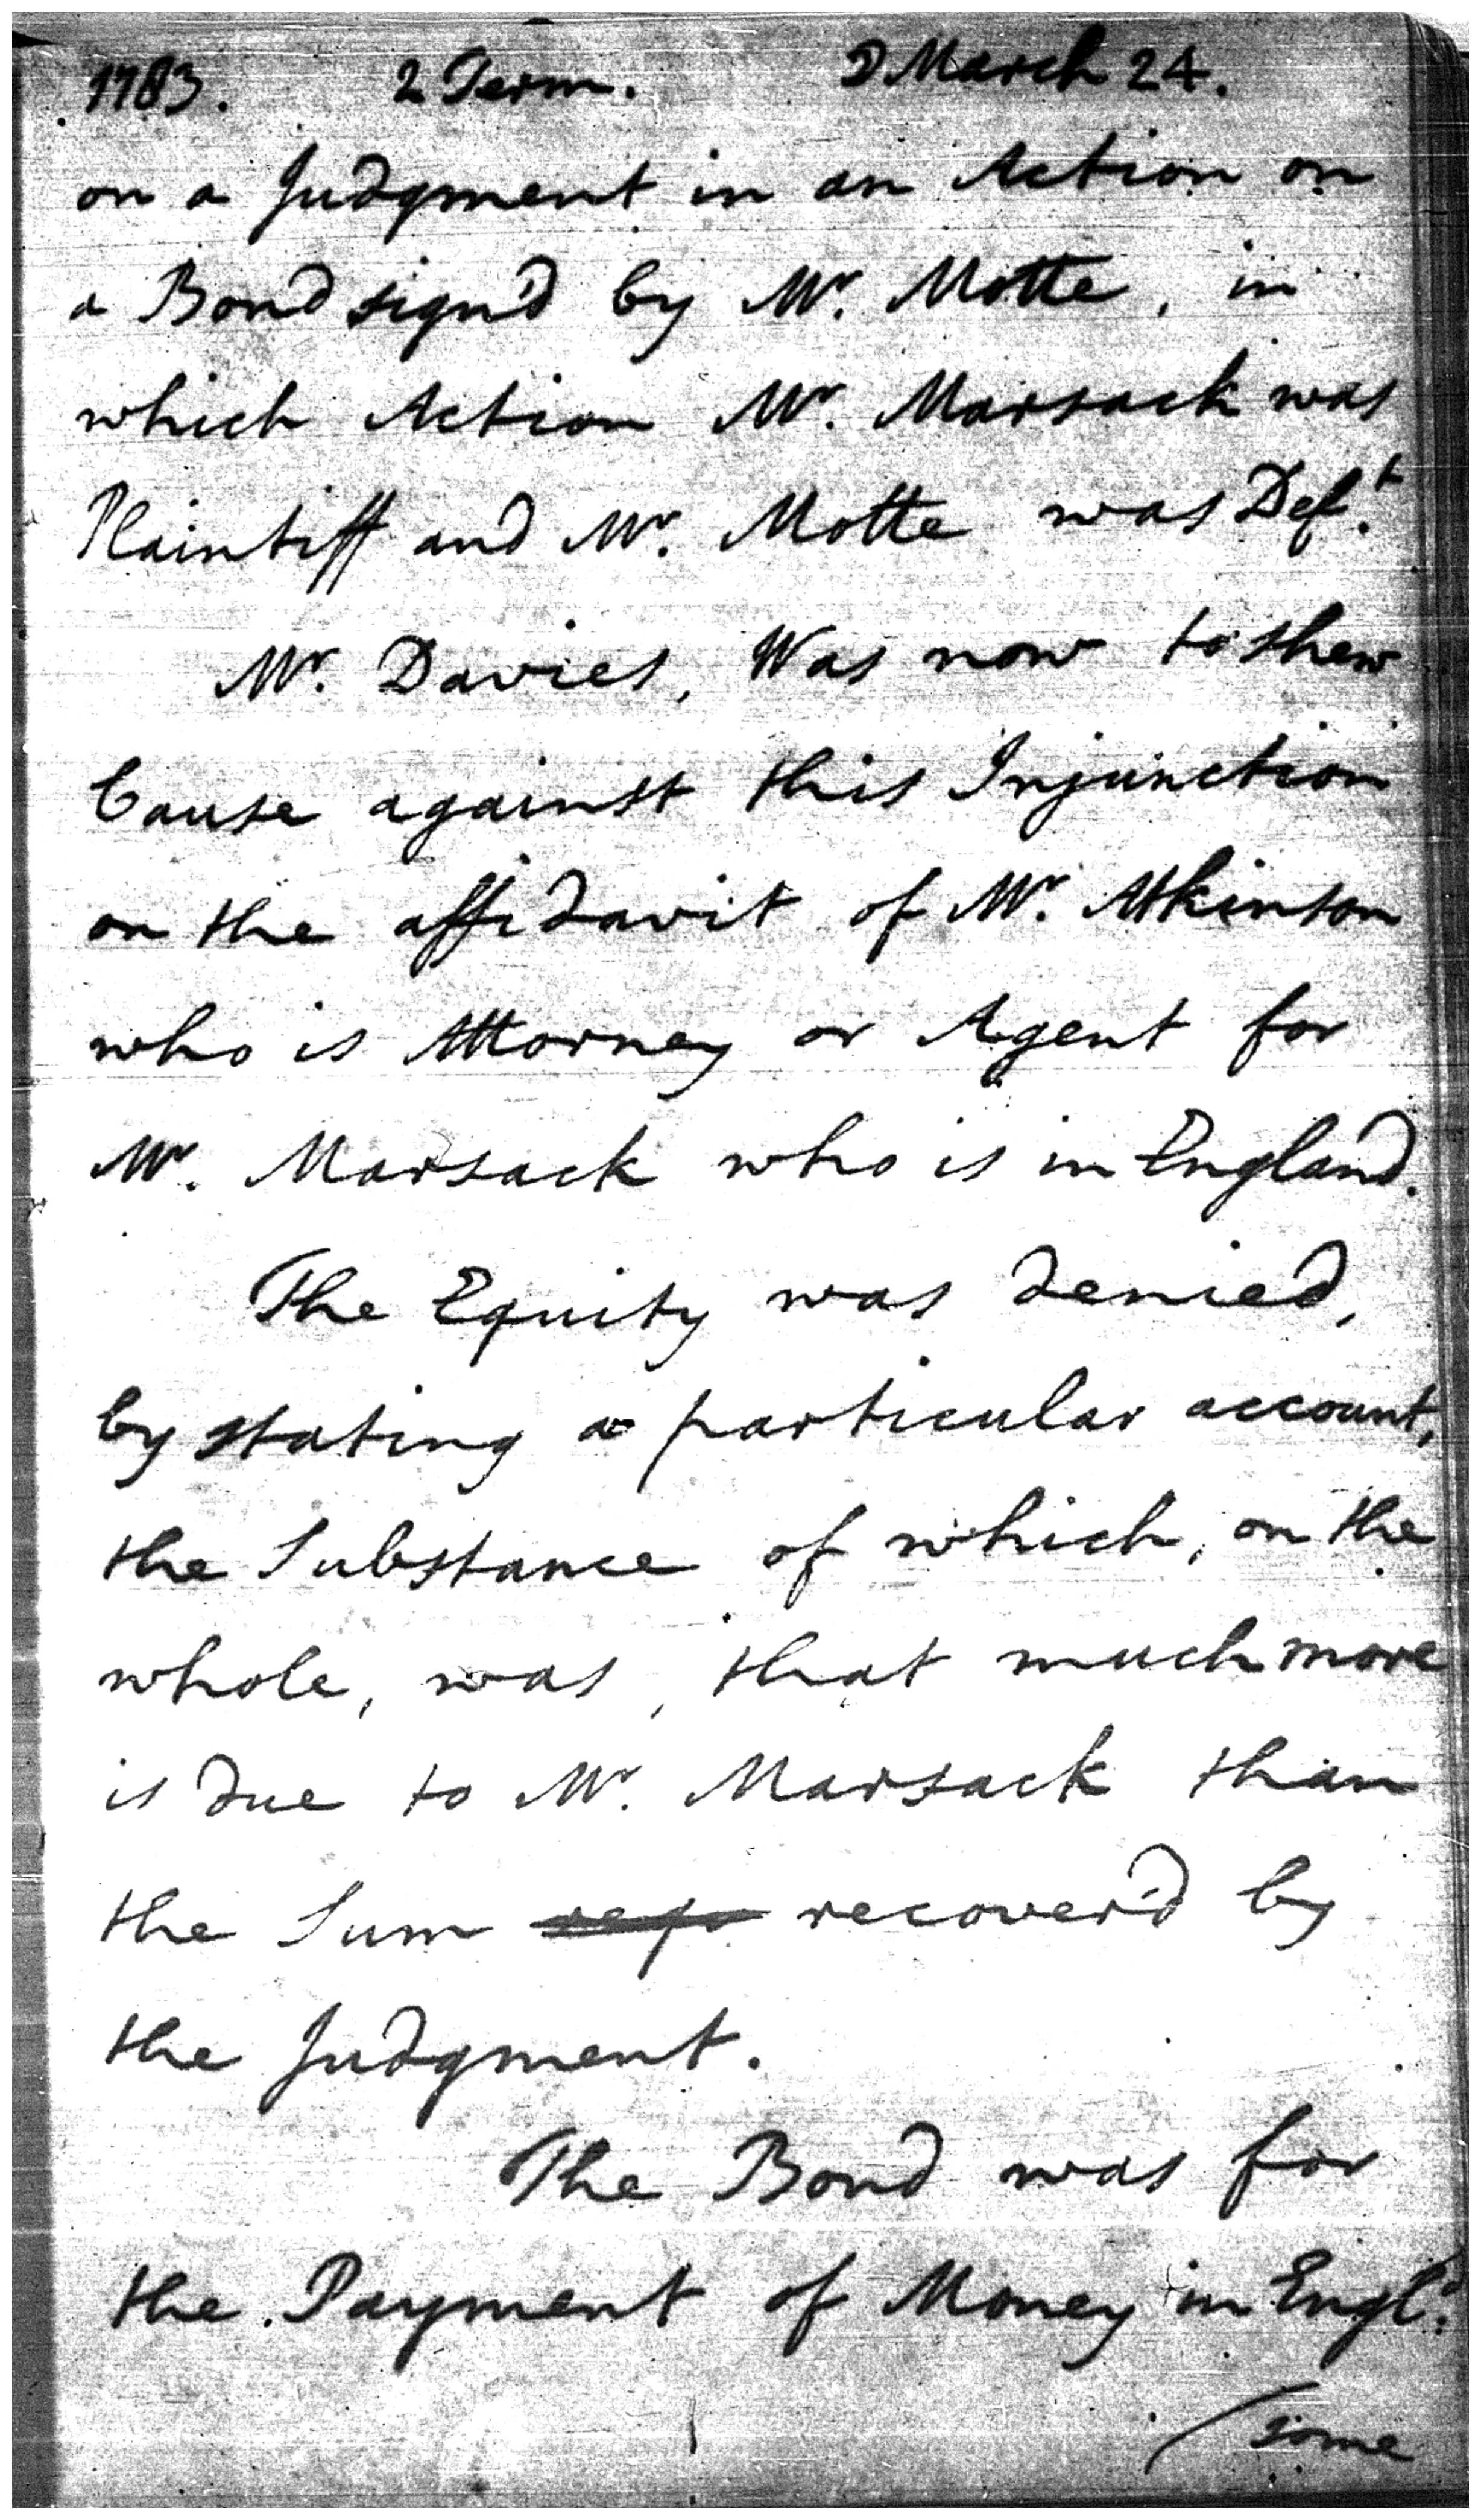 1783. 2 Term. ☽ March 24.
on a Judgment in an Action on
a Bond sign'd by Mr. Motte, in
which Action Mr. Marsack was
Plaintiff and Mr. Motte was Deft.
Mr. Davies, Was now to shew
Cause against this Injunction
on the affidavit of Mr. Atkinson
who is Attorney or Agent for
Mr. Marsack who is in England.
The Equity was denied,
by stating a particular account,
the Substance of which, on the
whole, was, that much more
is due to Mr. Marsack than
the Sum recover'd by
the Judgment.
The Bond was for
the Payment of Money in Engld.
(some